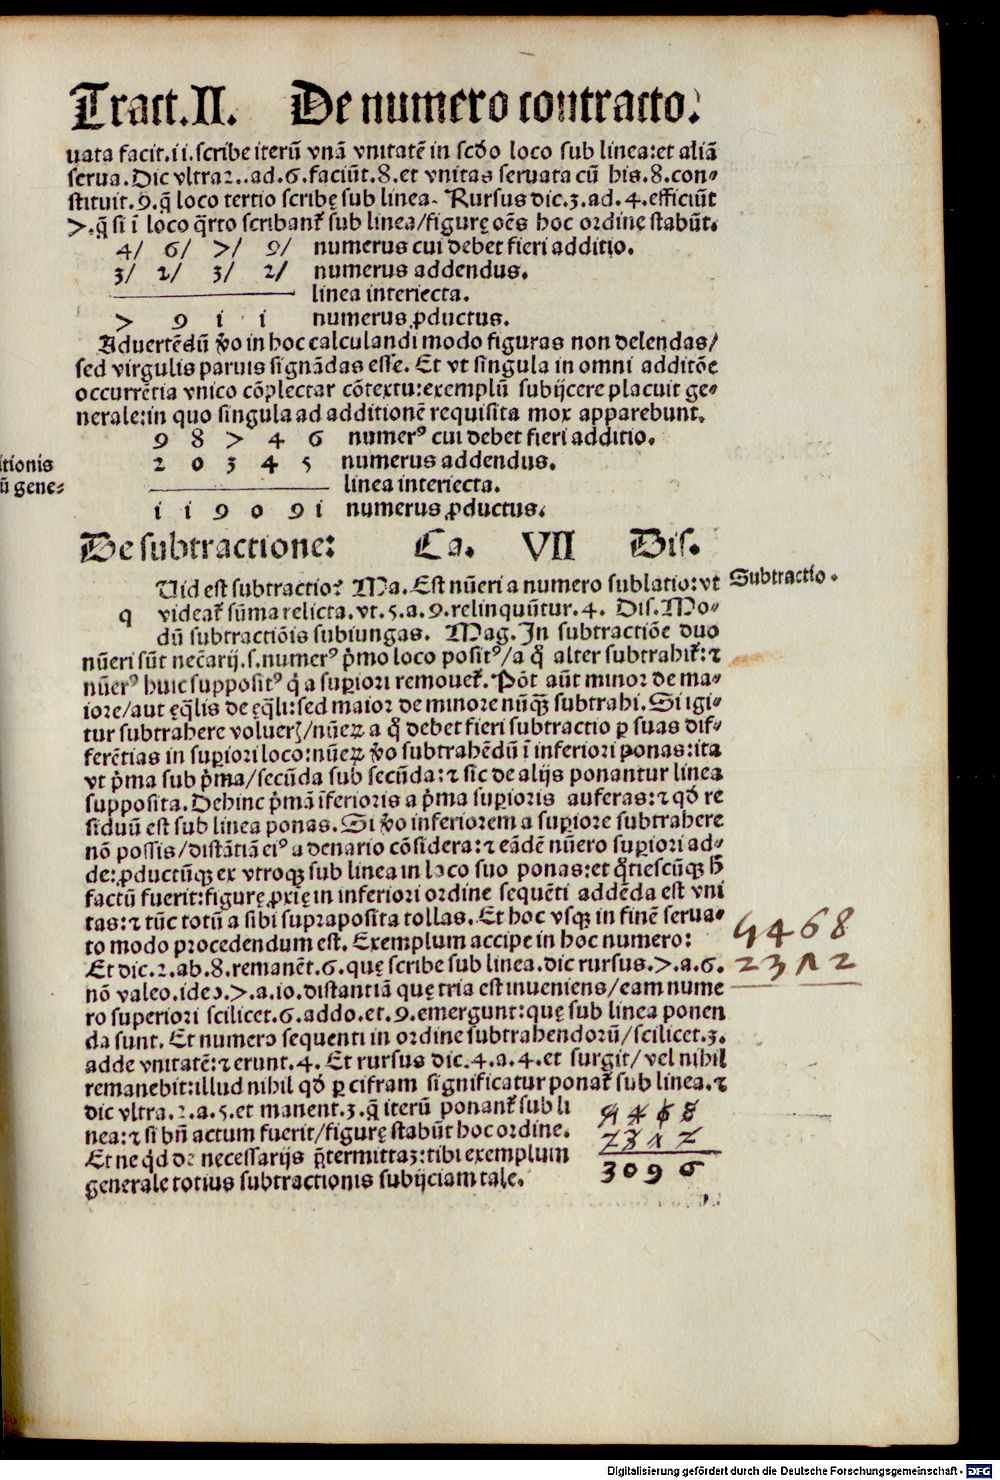 Tract.II. De numero contracto.
uata facit.ii.scribe iterū vnā vnitatē in scđo loco sub linea:et aliā
serua.Dic vltra 2..ad.6.faciūt.8.et vnitas seruata cū his.8.con⸗
stituit.9.q̄ loco tertio scribę sub linea. Rursus dic.3.ad.4.efficiūt
7.q̄ si ī loco q̄rto scribant᷑ sub linea/figurę oēs hoc ordine stabūt.
4/ 6/ 7/ 9/ numerus cui debet fieri additio.
3/ 2/ 3/ 2/ numerus addendus.
linea interiecta.
7 9 1 1 numerus ꝓductus.
Aduertēdū v̊o in hoc calculandi modo figuras non delendas/
sed virgulis paruis signādas esse. Et vt singula in omni additōe
occurrētia vnico cōplectar cōtextu:exemplū subijcere placuit ge⸗
nerale:in quo singula ad additionē requisita mox apparebunt.
9 8 7 4 6 numerꝰ cui debet fieri additio.
itionis
2 0 3 4 5 numerus addendus.
ū gene⸗
linea interiecta.
1 1 9 0 9 1 numerus ꝓductus.
De subtractione: Ca. VII Dis.
Uid est subtractio? Ma. Est nūeri a numero sublatio:vt
Subtractio.
q videat᷑ sūma relicta.vt.5.a.9.relinquūtur.4. Dis.Mo⸗
dū subtractiōis subiungas. Mag.In subtractiōe duo
nūeri sūt nec̄arij.s.numerꝰ p̄mo loco positꝰ/a q̊ alter subtrahit᷑:⁊
nūerꝰ huic suppositꝰ q̇ a suꝑiori remouet᷑. Pōt aūt minor de ma⸗
iore/aut ęq̄lis de ęq̄li:sed maior de minore nūq̄ꝫ subtrahi.Si igi⸗
tur subtrahere voluerꝭ/nūeꝝ a q̊ debet fieri subtractio ꝑ suas dif⸗
ferētias in suꝑiori loco:nūeꝝ v̊o subtrahēdū ī inferiori ponas:ita
vt p̄ma sub p̄ma/secūda sub secūda:⁊ sic de alijs ponantur linea
supposita.Dehinc p̄mā īferioris a p̄ma suꝑioris auferas:⁊ qđ re
siduū est sub linea ponas.Si v̊o inferiorem a suꝑiore subtrahere
nō possis/distātiā eiꝰ a denario cōsidera:⁊ eādē nūero suꝑiori ad⸗
de:ꝓductūqꝫ ex vtroqꝫ sub linea in loco suo ponas:et q̄tiescūqꝫ ħ
factū fuerit:figurę ꝓxīę in inferiori ordine sequēti addēda est vni
tas:⁊ tūc totū a sibi supraposita tollas. Et hoc vsqꝫ in finē serua⸗
to modo procedendum est. Exemplum accipe in hoc numero:
5468
2372
Et dic.2.ab.8.remanēt.6.quę scribe sub linea.dic rursus.7.a.6.
nō valeo.ideo.7.a.10.distantiā quę tria est inueniens/eam nume
ro superiori scilicet.6.addo.et.9.emergunt:quę sub linea ponen
da sunt. Et numero sequenti in ordine subtrahendorū/scilicet.3.
adde vnitatē:⁊ erunt.4. Et rursus dic.4.a.4.et surgit/vel nihil
remanebit:illud nihil qđ ꝑ cifram significatur ponat᷑ sub linea.⁊
dic vltra.2.a.5.et manent.3.q̄ iterū ponant᷑ sub li
nea:⁊ si bn̄ actum fuerit/figurę stabūt hoc ordine.
Et ne q̇d de necessarijs p̄termittaꝫ:tibi exemplum
generale totius subtractionis subijciam tale.
5468
2372
3096
Digitalisierung gefördert durch die Deutsche Forschungsgemeinschaft - DFG